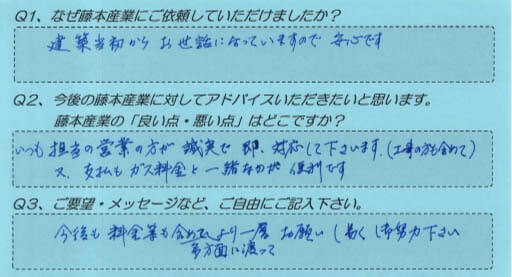 Q1、なぜ藤本産業にご依頼していただけましたか？
建築当初から お世話になっていますので 安心です
Q2、今後の藤本産業に対してアドバイスいただきたいと思います。
藤本産業の「良い点・悪い点」はどこですか？
いつも 担当の営業の方が 誠実で 即、対応して下さいます。(工事の方も含めて)
又、支払も ガス料金と 一緒なのが 便利です
Q3、ご要望・メッセージなど、ご自由にご記入下さい。
今後も 料金等も 含めて より一層 お願い し易く 努力下さい
多方面に渡って